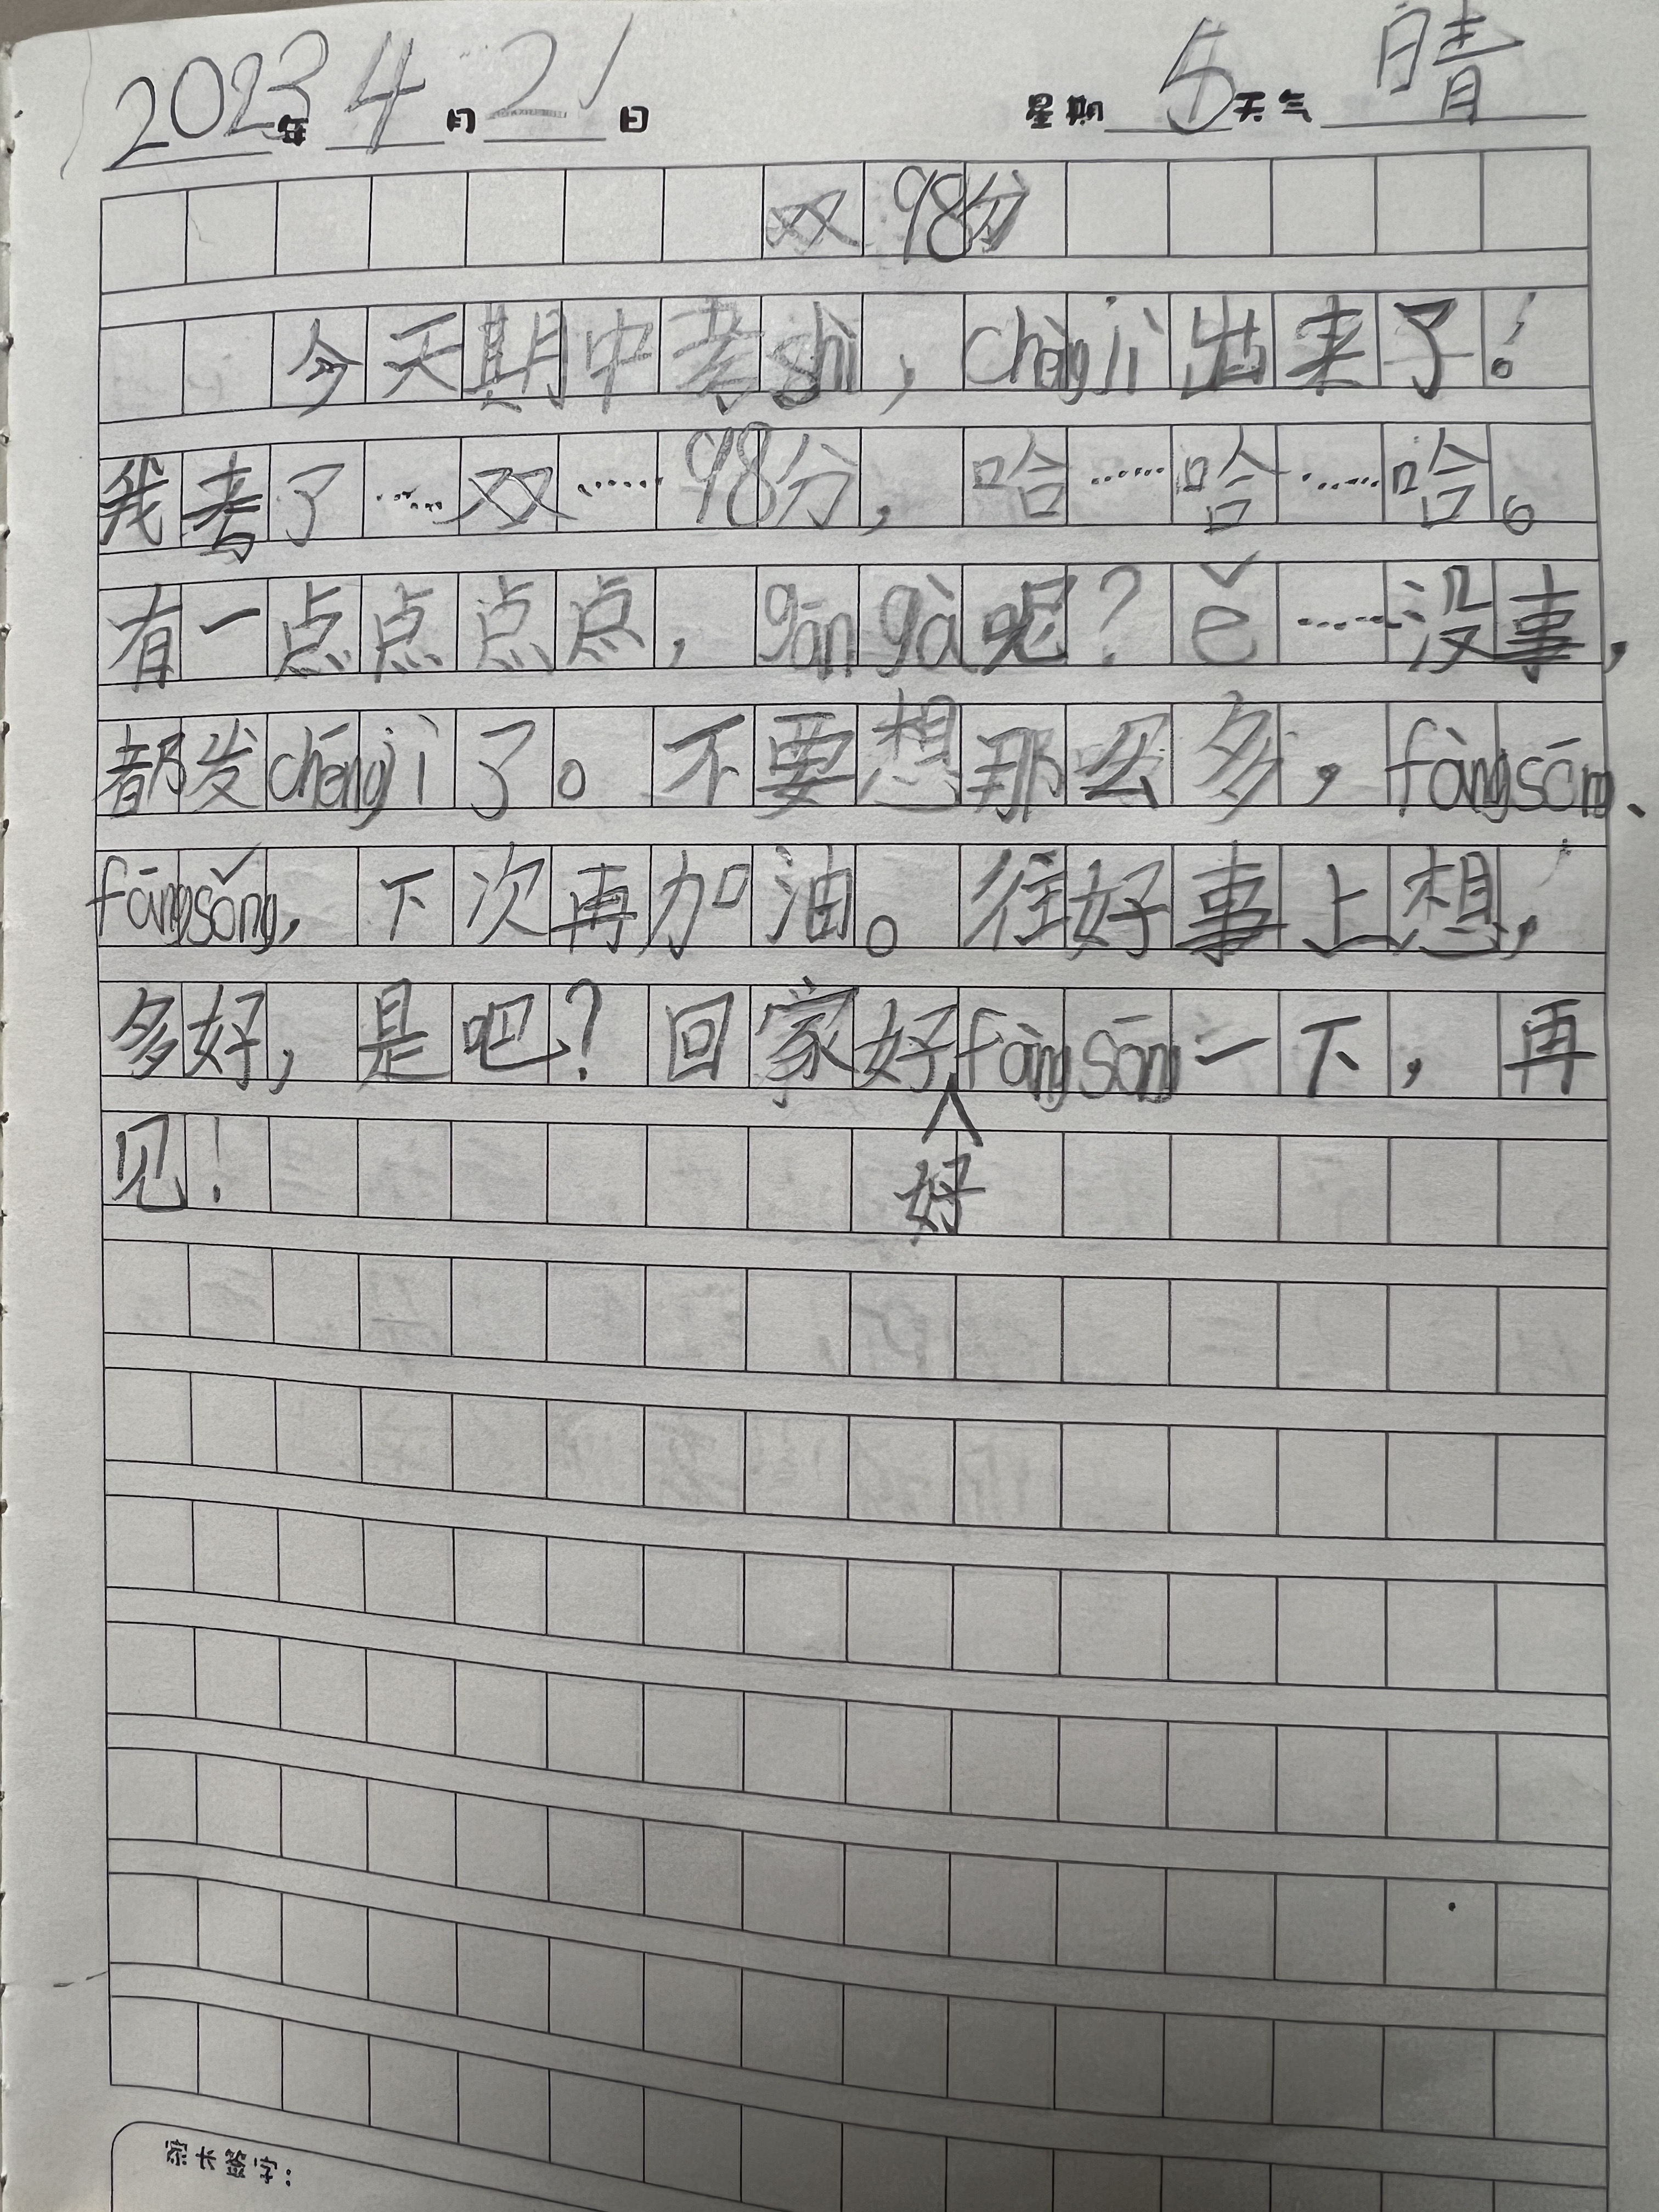 2023年4月21日 星期5天气晴
双98分
今天期中考shì，chéngjì出来了！
我考了……双……98分，哈……哈……哈。
有一点点点点，gāngà呢？ě……没事，
都发chéngjì了。不要想那么多，fàngsōng、
fāngsǒng，下次再加油。往好事上想，
多好，是吧？回家好好fàngsōng一下，再
见！
家长签字：